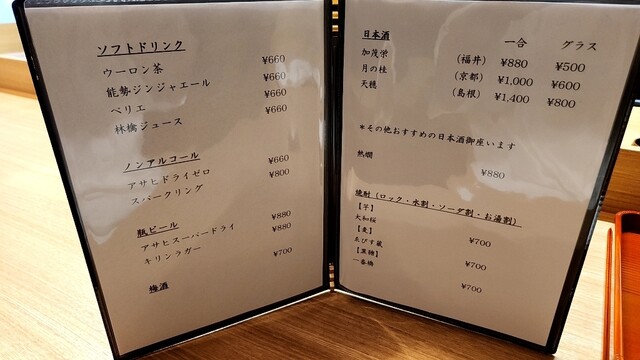 ソフトドリンク
ウーロン茶 ¥660
能勢ジンジャエール ¥660
ペリエ ¥660
林檎ジュース ¥660
ノンアルコール
アサヒドライゼロ ¥660
スパークリング ¥800
瓶ビール
アサヒスーパードライ ¥880
キリンラガー ¥880
梅酒 ¥700
日本酒 一合 グラス
加茂栄 (福井) ¥880 ¥500
月の桂 (京都) ¥1,000 ¥600
天穏 (島根) ¥1,400 ¥800
*その他おすすめの日本酒御座います
熱燗 ¥880
焼酎(ロック・水割・ソーダ割・お湯割)
【芋】
大和桜 ¥700
【麦】
ゑびす蔵 ¥700
【黒糖】
一番橋 ¥700